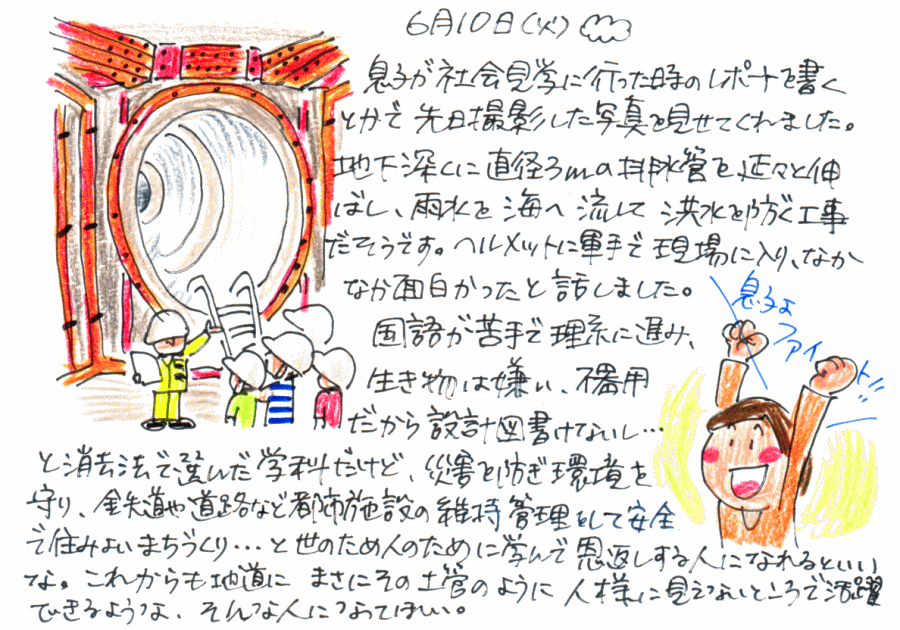 6月10日(火)
息子が社会見学に行った時のレポートを書く
とかで先日撮影した写真を見せてくれました。
地下深くに直径3mの排水管を延々と伸
ばし、雨水を海へ流して洪水を防ぐ工事
だそうです。ヘルメットに軍手で現場に入り、なか
なか面白かったと話しました。
国語が苦手で理系に進み、
生き物は嫌い、不器用
だから設計図書けないし…
と消去法で選んだ学科だけど、災害を防ぎ環境を
守り、鉄道や道路など都市施設の維持管理をして安全
で住みよいまちづくり…と世のため人のために学んで恩返しする人になれるといい
な。これからも地道に まさにその土管のように人様に見えないところで活躍
できるような、そんな人になってほしい。
息子よ
ファイ
ト!!